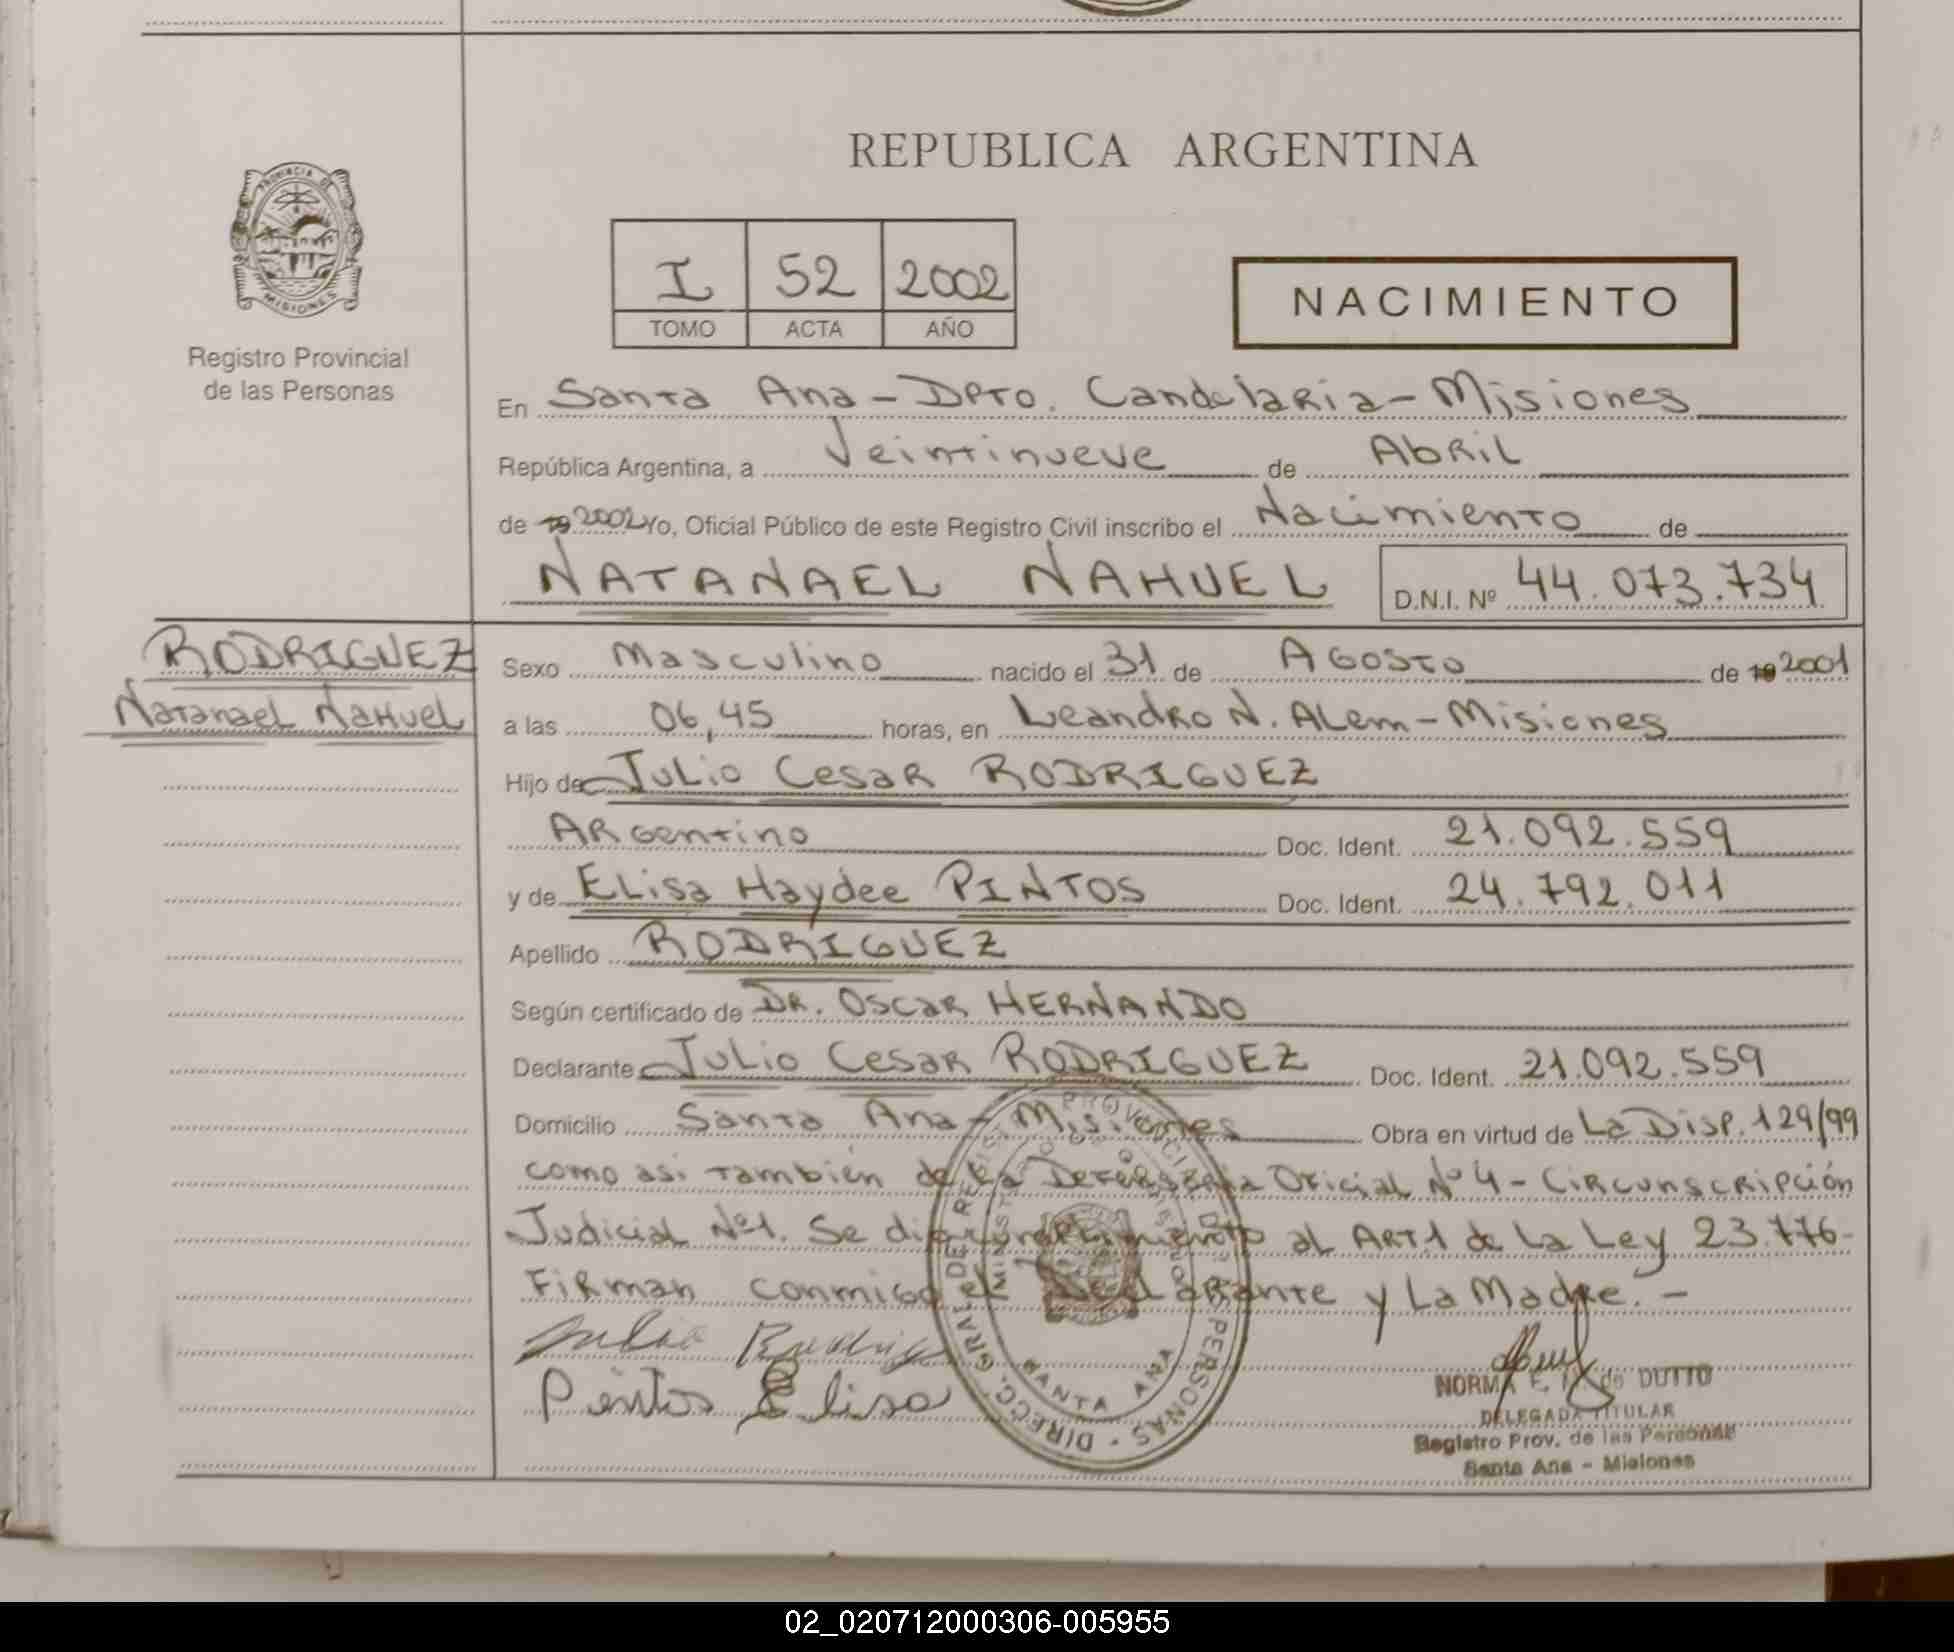 REPUBLICA ARGENTINA
PROVINCIA DE MISIONES
Registro Provincial
de las Personas
I 52 2002
TOMO ACTA AÑO
NACIMIENTO
En Santa Ana - Dpto. Candelaria - Misiones
República Argentina, a Veintinueve de Abril
de 19 2002 Yo, Oficial Público de este Registro Civil inscribo el Nacimiento de
NATANAEL NAHUEL D.N.I. Nº 44.073.734
RODRIGUEZ
Natanael Nahuel
Sexo Masculino nacido el 31 de Agosto de 19 2001
a las 06,45 horas, en Leandro N. Alem - Misiones
Hijo de Julio Cesar RODRIGUEZ
Argentino Doc. Ident. 21.092.559
y de Elisa Haydee PINTOS Doc. Ident. 24.792.011
Apellido RODRIGUEZ
Según certificado de Dr. Oscar HERNANDO
Declarante Julio Cesar RODRIGUEZ Doc. Ident. 21.092.559
Domicilio Santa Ana - Misiones Obra en virtud de La Disp. 129/99
como asi también de la Defensoria Oficial Nº 4 - Circunscripción
Judicial Nº1. Se dio cumplimiento al Art 1 de La Ley 23.776-
Firman conmigo el Declarante y La Madre. -
Julio Rodrigue
Pintos Elisa
DIRECC. GRAL DE REGIST PROVINCIAL DE PERSONAS
MINISTERIO DE GOBIERNO
SANTA ANA
NORMA E. de DUTTO
DELEGADA TITULAR
Registro Prov. de las Personas
Santa Ana - Misiones
02_020712000306-005955